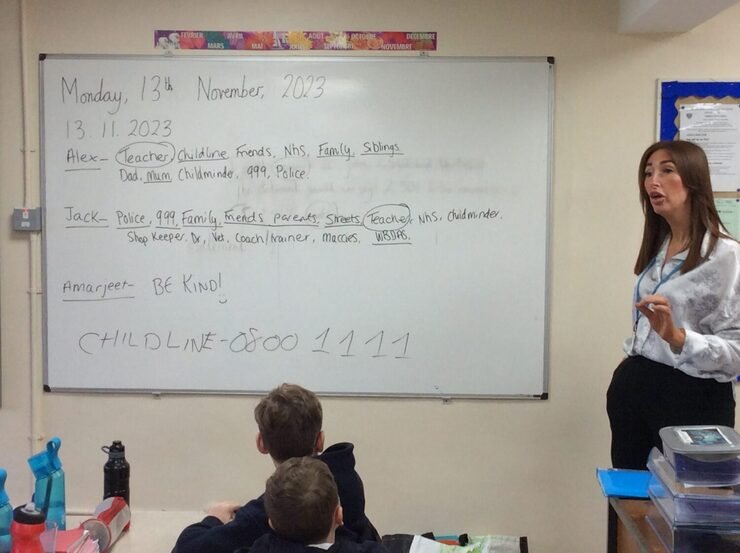 FEVRIER MARS AVRIL MAI AOUT OCTOBRE NOVEMBRE DECEMBRE
Monday, 13th November, 2023
13.11.2023
Alex- Teacher, Childline, Friends, NHS, Family, Siblings
Dad, Mum, Childminder, 999, Police.
Jack- Police, 999, Family, friends parents, Streets, Teacher, NHS, Childminder.
Shop Keeper, Dr, Vet, Coach/trainer, maccies, WBDAS.
Amarjeet- BE KIND!
CHILDLINE-0800 1111